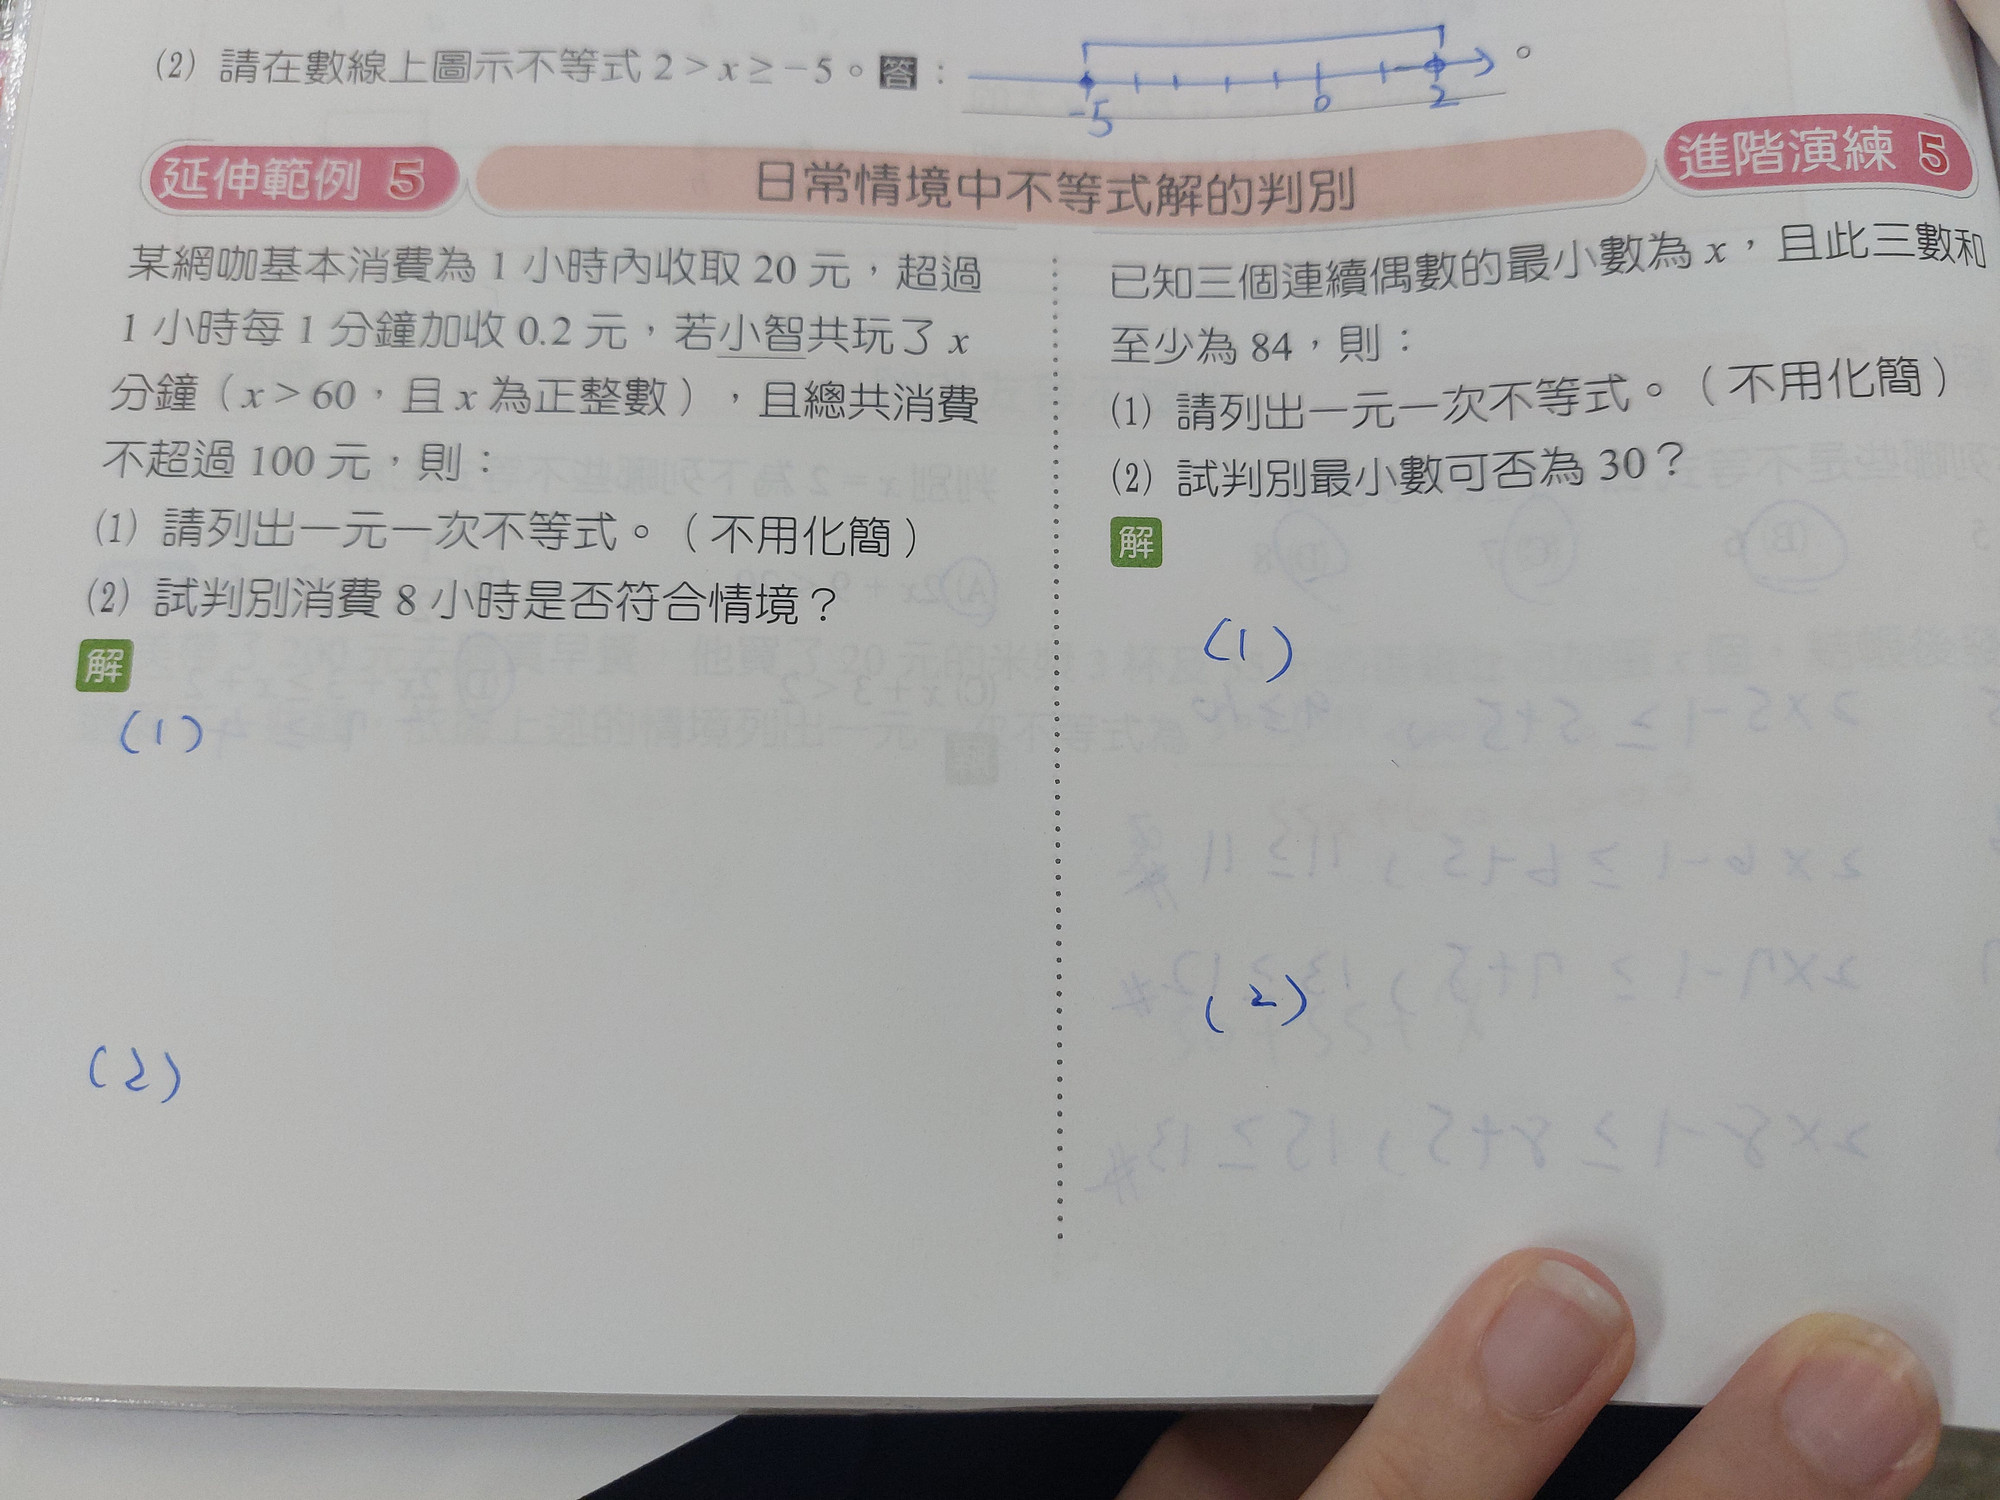 (2) 請在數線上圖示不等式 2 > x ≥ −5。答：
-5 0 2 。
延伸範例 5 日常情境中不等式解的判別 進階演練 5
某網咖基本消費為 1 小時內收取 20 元，超過
1 小時每 1 分鐘加收 0.2 元，若小智共玩了 x
分鐘（x > 60，且 x 為正整數），且總共消費
不超過 100 元，則：
(1) 請列出一元一次不等式。（不用化簡）
(2) 試判別消費 8 小時是否符合情境？
解
(1)
(2)
已知三個連續偶數的最小數為 x，且此三數和
至少為 84，則：
(1) 請列出一元一次不等式。（不用化簡）
(2) 試判別最小數可否為 30？
解
(1)
(2)